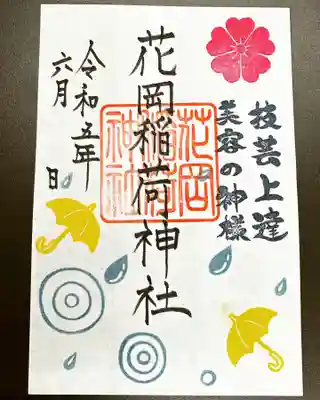 技芸上達
美容の神様
花岡稲荷神社
花岡
稲荷
神社
令和五年
六月 日